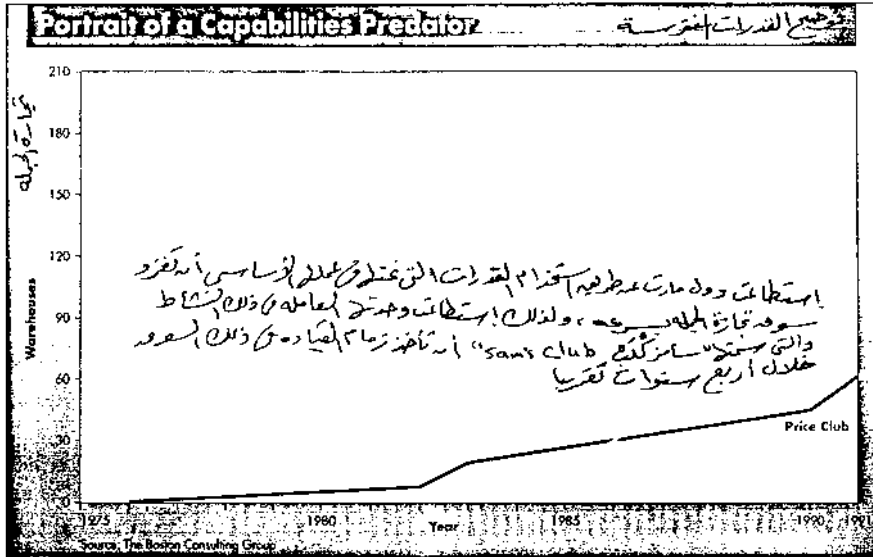 Portrait of a Capabilities Predator
توضيح القدرات المفترسة
210
180
150
120
90
60
30
0
تجارة الجملة
Warehouses
استطاعت وول مارت عن طريق استخدام القدرات التى تمتلكها فى عملها الأساسى أن تغزو
سوق تجارة الجملة بسرعة، ولذلك استطاعت وحدتها العاملة فى ذلك النشاط
والتى سمتها "سامز كلوب Sam's Club" أن تأخذ زمام القيادة فى ذلك السوق
خلال أربع سنوات تقريبا
Price Club
1975
1980
1985
1990
1991
Year
Source: The Boston Consulting Group